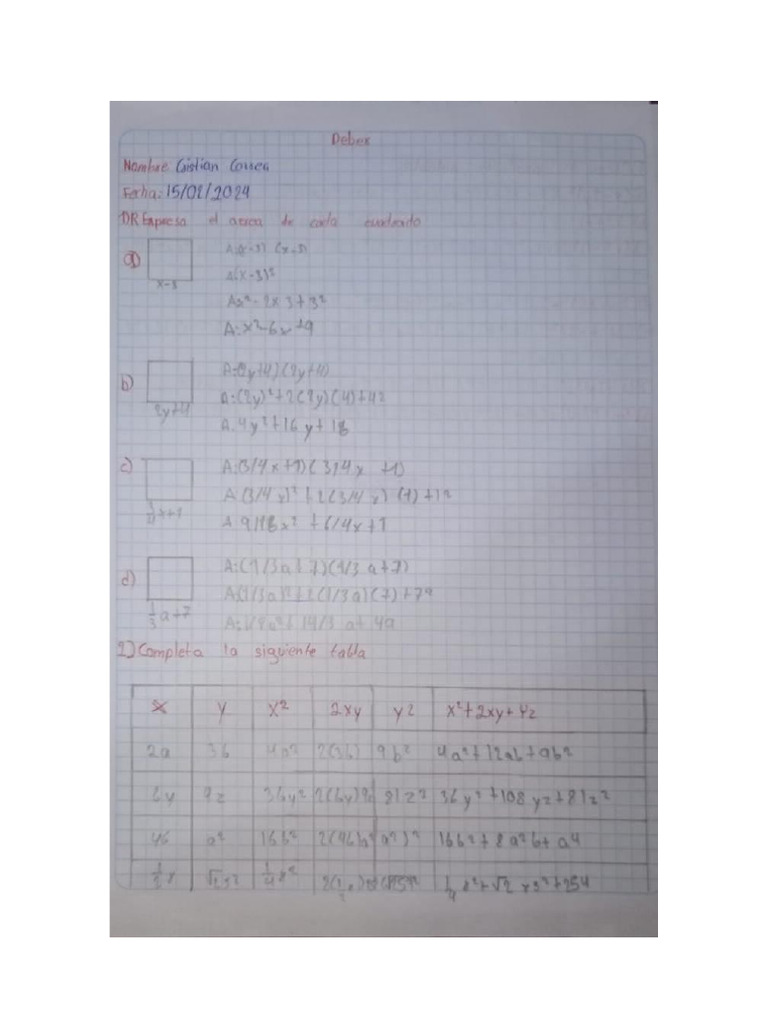 Deber
Nombre: Cristian Correa
Fecha: 15/02/2024
1) R Expresa el area de cada cuadrado
a) A:(x-3) (x-3)
A(x-3)²
x-3
Ax²-2x3+3²
A:x²-6x+9
b) A:(2y+4)(2y+4)
A:(2y)²+2(2y)(4)+42
2y+4
A.4y²+16y+18
c) A:(3/4x+1)(3/4x+1)
A(3/4x)²+2(3/4x)(1)+12
A 9/18x²+6/4x+1
d) A:(1/3a+7)(1/3a+7)
A(1/3a)²+2(1/3a)(7)+7²
1/3 a+7
14/3 a+49
2) Completa la siguiente tabla
x y x² 2xy y2 x²+2xy+y2
2a 3b 4a² 2(3b) 9b² 4a²+12ab+9b²
6y 9z 36y² 2(6y)9z 81z² 36y²+108yz+81z²
4b a² 16b² 16b²+8a²b+a4